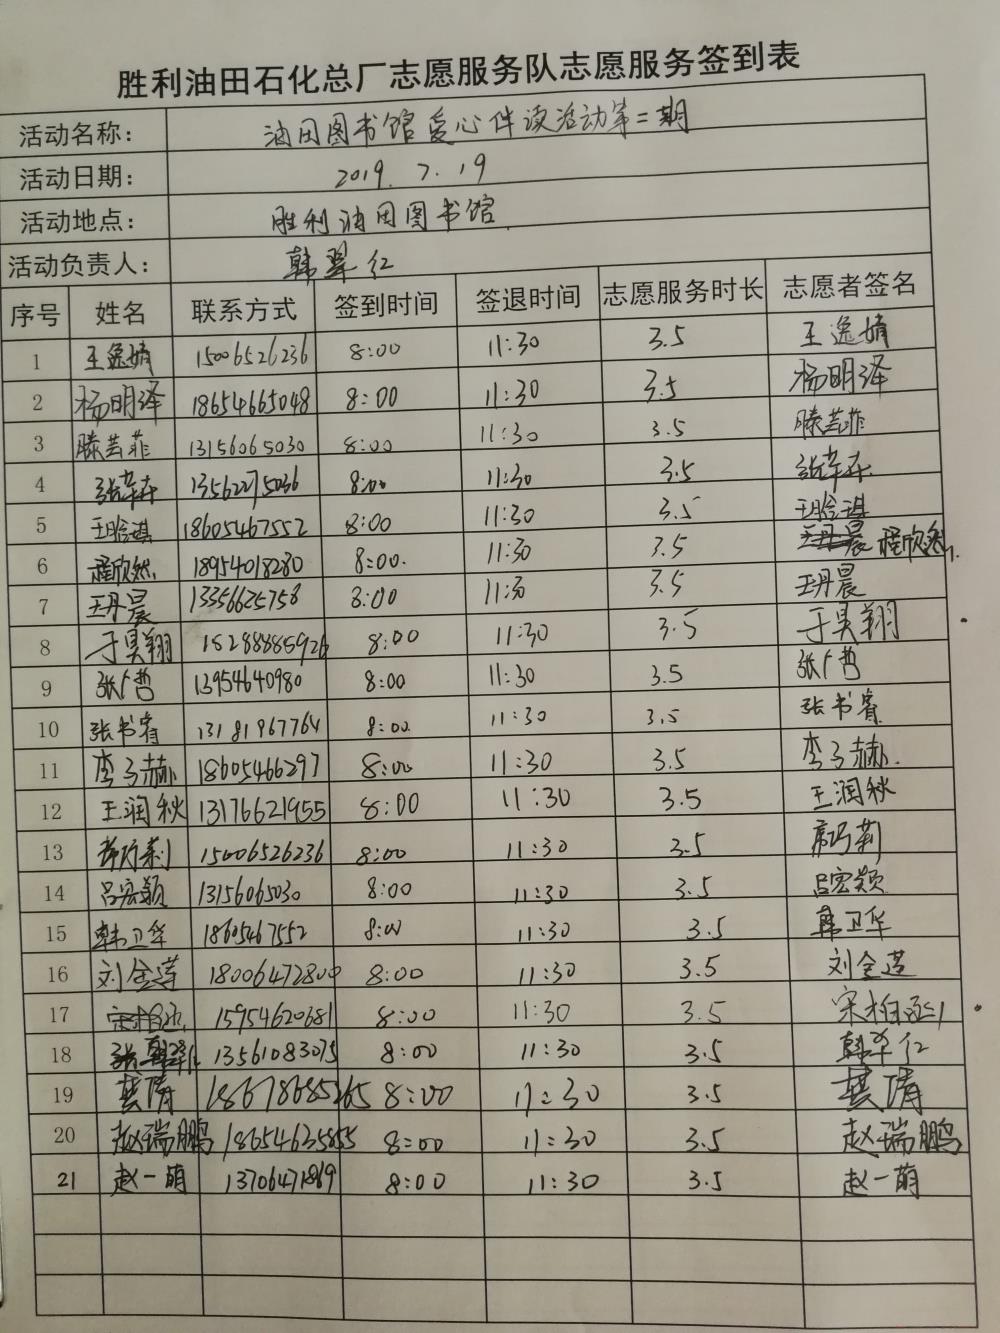 胜利油田石化总厂志愿服务队志愿服务签到表
活动名称： 油田图书馆爱心伴读活动第二期
活动日期： 2019.7.19
活动地点： 胜利油田图书馆
活动负责人： 韩翠红
序号 姓名 联系方式 签到时间 签退时间 志愿服务时长 志愿者签名
1 王逸婧 15006526236 8:00 11:30 3.5 王逸婧
2 杨明泽 18654665048 8:00 11:30 3.5 杨明泽
3 滕芸菲 13156065030 8:00 11:30 3.5 滕芸菲
4 8:00 11:30 3.5
5 王晗淇 18605467552 8:00 11:30 3.5 王晗淇
6 程欣然 18954018280 8:00. 11:30 3.5 程欣然
7 王丹晨 13356625758 8:00 11:30 3.5 王丹晨
8 于昊翔 15288885926 8:00 11:30 3.5 于昊翔
9 13954640980 8:00 11:30 3.5
10 张书睿 13181967764 8:00 11:30 3.5 张书睿
11 李子赫 18605466297 8:00 11:30 3.5 李子赫
12 王润秋 13176621955 8:00 11:30 3.5 王润秋
13 15006526236 8:00 11:30 3.5
14 吕宏颖 13156065030 8:00 11:30 3.5 吕宏颖
15 韩卫华 18605467552 8:00 11:30 3.5 韩卫华
16 刘金莲 18006472800 8:00 11:30 3.5 刘金莲
17 15954620681 8:00 11:30 3.5
18 13561083075 8:00 11:30 3.5 韩翠红
19 龚倩 18678685265 8:00 11:30 3.5 龚倩
20 赵瑞鹏 18654635855 8:00 11:30 3.5 赵瑞鹏
21 赵一萌 13706471869 8:00 11:30 3.5 赵一萌